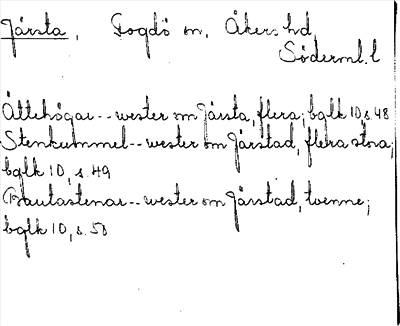 Järsta, Fogdö sn, Åkers hd
Söderml. l
Ättehögar -- wester om Järsta, flera; bglk 10, s. 48
Stenkummel -- wester om Järstad, flera stora;
bglk 10, s. 49
Bautastenar -- wester om Järstad, tvenne;
bglk 10, s. 50